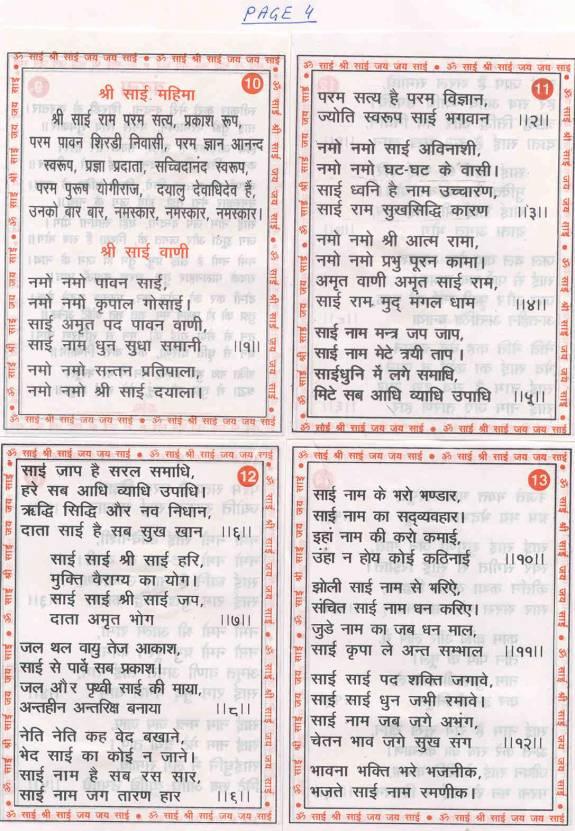 PAGE 4
ॐ साई श्री साई जय जय साई
10
श्री साई महिमा
श्री साई राम परम सत्य, प्रकाश रूप,
परम पावन शिरडी निवासी, परम ज्ञान आनन्द
स्वरूप, प्रज्ञा प्रदाता, सच्चिदानंद स्वरूप,
परम पुरूष योगीराज, दयालु देवाधिदेव हैं,
उनको बार बार, नमस्कार, नमस्कार, नमस्कार।
श्री साई वाणी
नमो नमो पावन साई,
नमो नमो कृपाल गोसाई।
साई अमृत पद पावन वाणी,
साई नाम धुन सुधा समानी ॥१॥
नमो नमो सन्तन प्रतिपाला,
नमो नमो श्री साई दयाला।
11
परम सत्य है परम विज्ञान,
ज्योति स्वरूप साई भगवान ॥२॥
नमो नमो साई अविनाशी,
नमो नमो घट-घट के वासी।
साई ध्वनि है नाम उच्चारण,
साई राम सुखसिद्धि कारण ॥३॥
नमो नमो श्री आत्म रामा,
नमो नमो प्रभु पूरन कामा।
अमृत वाणी अमृत साई राम,
साई राम मुद् मंगल धाम ॥४॥
साई नाम मन्त्र जप जाप,
साई नाम मेटे त्रयी ताप।
साईधुनि में लगे समाधि,
मिटे सब आधि व्याधि उपाधि ॥५॥
12
साई जाप है सरल समाधि,
हरे सब आधि व्याधि उपाधि।
ऋद्धि सिद्धि और नव निधान,
दाता साई है सब सुख खान ॥६॥
साई साई श्री साई हरि,
मुक्ति वैराग्य का योग।
साई साई श्री साई जप,
दाता अमृत भोग ॥७॥
जल थल वायु तेज आकाश,
साई से पावें सब प्रकाश।
जल और पृथ्वी साई की माया,
अन्तहीन अन्तरिक्ष बनाया ॥८॥
नेति नेति कह वेद बखाने,
भेद साई का कोई न जाने।
साई नाम है सब रस सार,
साई नाम जग तारण हार ॥९॥
13
साई नाम के भरो भण्डार,
साई नाम का सद्व्यवहार।
इहां नाम की करो कमाई,
उंहा न होय कोई कठिनाई ॥१०॥
झोली साई नाम से भरिऐ,
संचित साई नाम धन करिए।
जुडे नाम का जब धन माल,
साई कृपा ले अन्त सम्भाल ॥११॥
साई साई पद शक्ति जगावे,
साई साई धुन जभी रमावे।
साई नाम जब जगे अभंग,
चेतन भाव जगे सुख संग ॥१२॥
भावना भक्ति भरे भजनीक,
भजते साई नाम रमणीक।